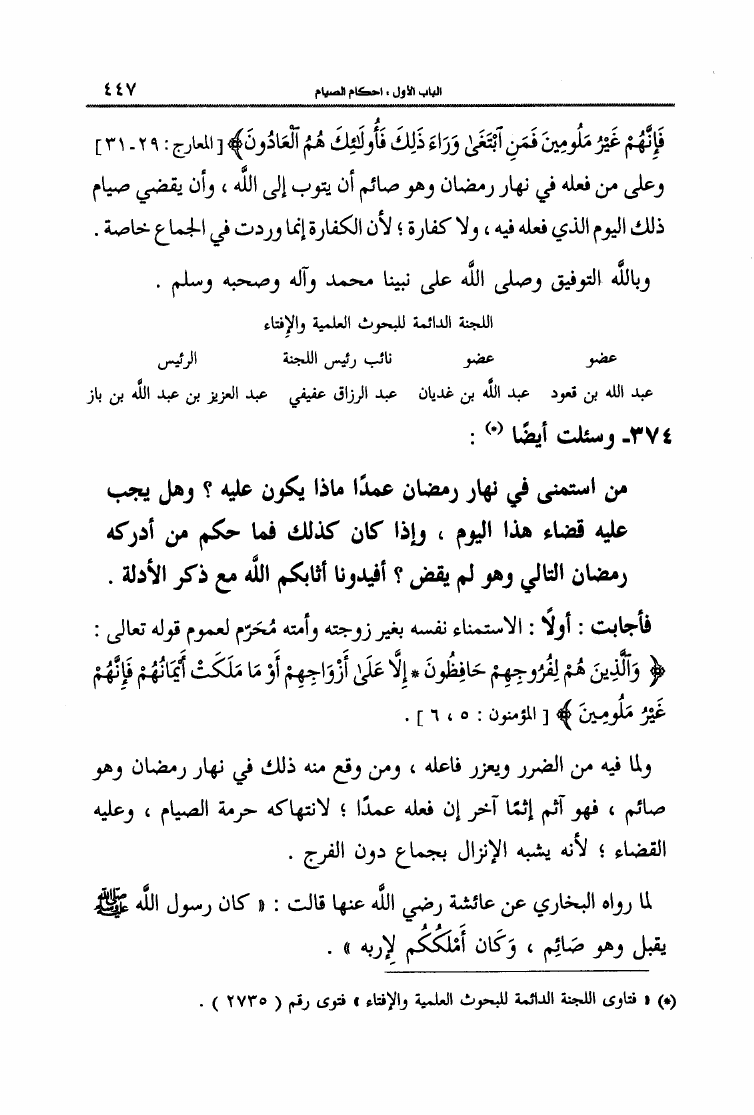 الباب الأول : أحكام الصيام ٤٤٧
فَإِنَّهُمْ غَيْرُ مَلُومِينَ فَمَنِ ٱبْتَغَىٰ وَرَاءَ ذَلِكَ فَأُولَـٰئِكَ هُمُ ٱلْعَادُونَ﴾ [المعارج: ٢٩ـ٣١]
وعلى من فعله في نهار رمضان وهو صائم أن يتوب إلى اللَّه ، وأن يقضي صيام
ذلك اليوم الذي فعله فيه ، ولا كفارة ؛ لأن الكفارة إنما وردت في الجماع خاصة .
وباللَّه التوفيق وصلى اللَّه على نبينا محمد وآله وصحبه وسلم .
اللجنة الدائمة للبحوث العلمية والإفتاء
عضو عضو نائب رئيس اللجنة الرئيس
عبد الله بن قعود عبد اللَّه بن غديان عبد الرزاق عفيفي عبد العزيز بن عبد اللَّه بن باز
٣٧٤ـ وسئلت أيضًا (*) :
من استمنى في نهار رمضان عمدًا ماذا يكون عليه ؟ وهل يجب
عليه قضاء هذا اليوم ، وإذا كان كذلك فما حكم من أدركه
رمضان التالي وهو لم يقض ؟ أفيدونا أثابكم اللَّه مع ذكر الأدلة .
فأجابت : أولًا : الاستمناء نفسه بغير زوجته وأمته مُحَرّم لعموم قوله تعالى :
﴿ وَٱلَّذِينَ هُمْ لِفُرُوجِهِمْ حَافِظُونَ * إِلَّا عَلَىٰ أَزْوَاجِهِمْ أَوْ مَا مَلَكَتْ أَيْمَانُهُمْ فَإِنَّهُمْ
غَيْرُ مَلُومِينَ ﴾ [ المؤمنون : ٥ ، ٦ ] .
ولما فيه من الضرر ويعزر فاعله ، ومن وقع منه ذلك في نهار رمضان وهو
صائم ، فهو آثم إثمًا آخر إن فعله عمدًا ؛ لانتهاكه حرمة الصيام ، وعليه
القضاء ؛ لأنه يشبه الإنزال بجماع دون الفرج .
لما رواه البخاري عن عائشة رضي اللَّه عنها قالت : « كان رسول اللَّه ﷺ
يقبل وهو صَائِم ، وَكَان أَمْلَكُكُم لِإربه » .
(*) « فتاوى اللجنة الدائمة للبحوث العلمية والإفتاء » فتوى رقم ( ٢٧٣٥ ) .